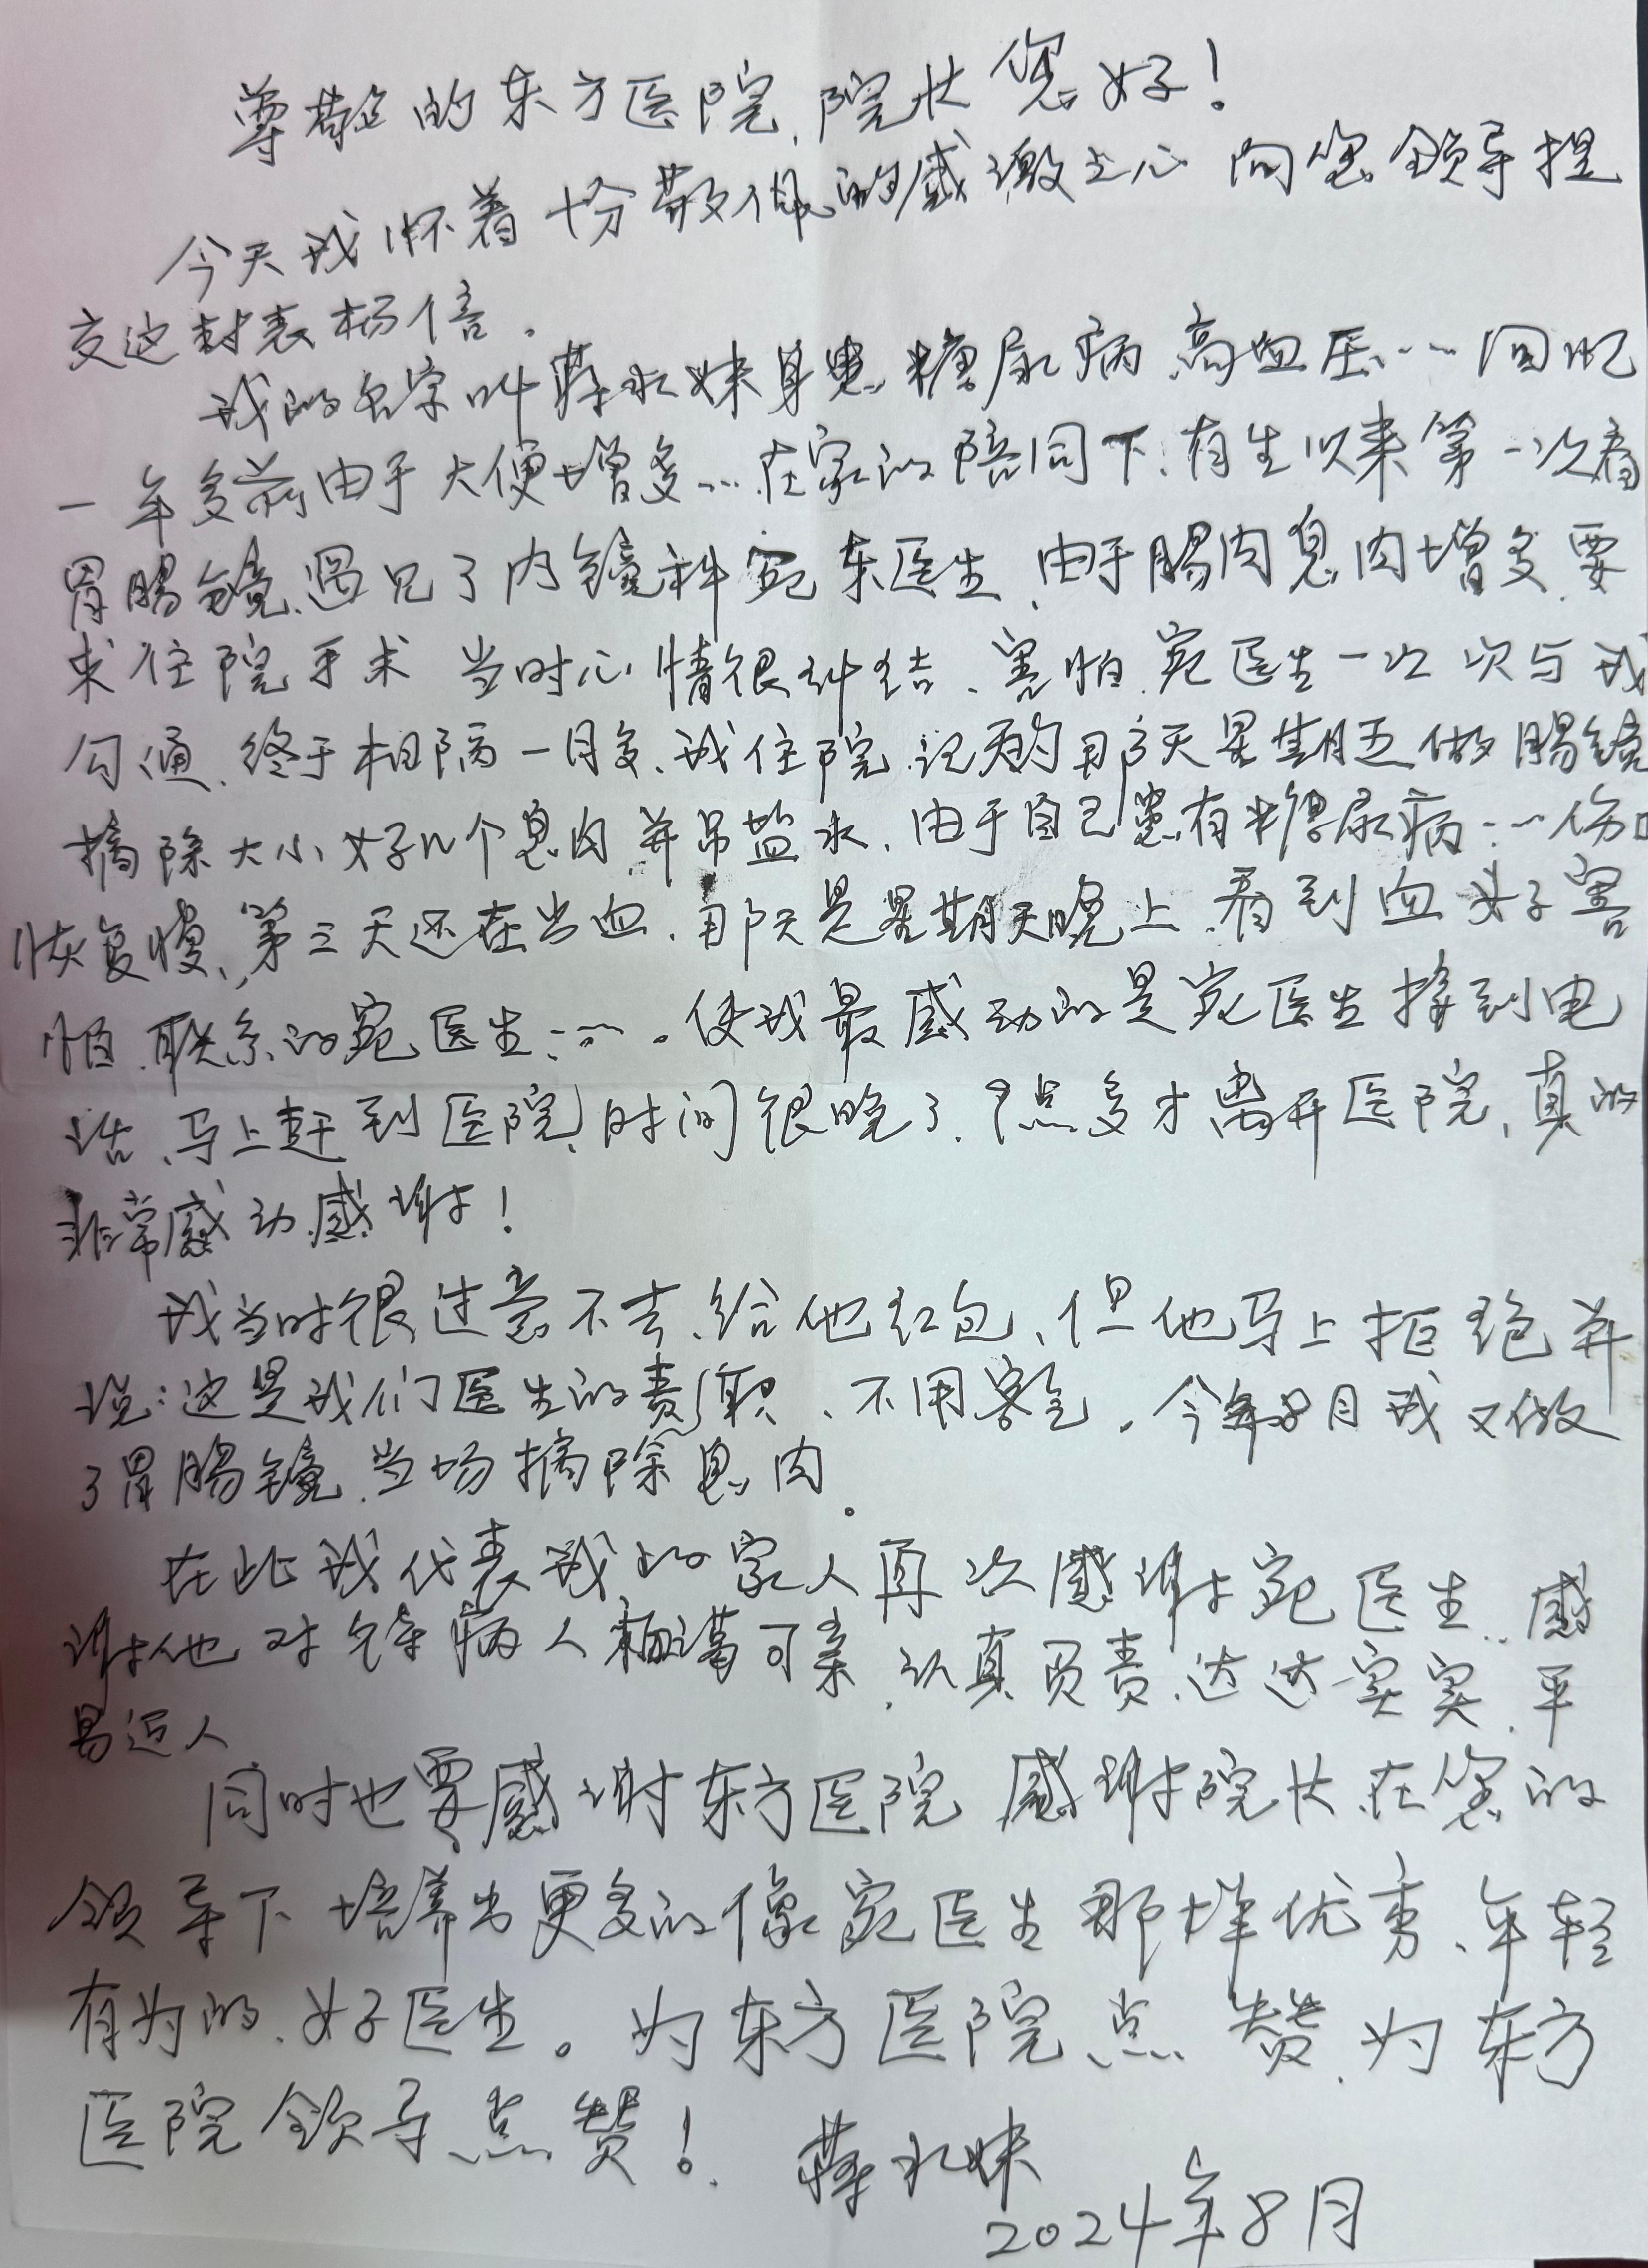 尊敬的东方医院,院长您好!
今天我怀着十分敬佩的感激之心向您领导提
交这封表杨信.
我的名字叫蒋永妹身患糖尿病高血压……回忆
一年多前由于大便增多…在家的陪同下.有生以来第一次看
胃肠镜.遇见了内镜科宛东医生、由于肠内息肉增多.要
求住院手术 当时心情很纠结、害怕.宛医生一次次与我
勾通.终于相隔一月多、我住院.记的那天星期五做肠镜
摘除大小好几个息肉并吊盐水.由于自己患有糖尿病……伤口
恢复慢、第三天还在出血.那天是星期天晚上.看到血好害
怕.联系的宛医生……。使我最感动的是宛医生接到电
话、马上赶到医院,时间很晚了、9点多才离开医院、真的
非常感动.感谢!
我当时很过意不去、给他红包、但他马上拒绝并
说:这是我们医生的责职、不用客气.今年8月我又做
了胃肠镜.当场摘除息肉。
在此我代表我的家人再次感谢宛医生.感
谢他对每病人和蔼可亲、认真负责、达达实实、平
易近人
同时也要感谢东方医院 感谢院长.在您的
领导下培养出更多的像宛医生那样优秀、年轻
有为的、好医生。为东方医院点赞.为东方
医院领导点赞!
蒋永妹
2024年8月